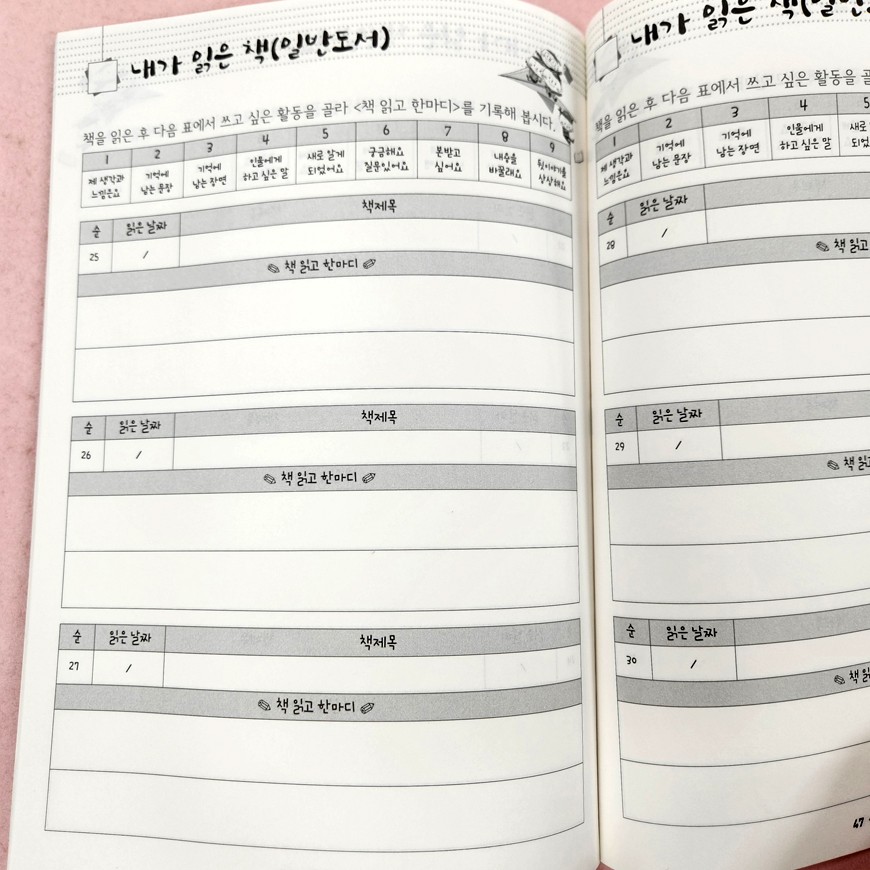 내가 읽은 책(일반도서)
책을 읽은 후 다음 표에서 쓰고 싶은 활동을 골라 <책 읽고 한마디>를 기록해 봅시다.
1 2 3 4 5 6 7 8 9
제 생각과 느낌은요
기억에 남는 문장
기억에 남는 장면
인물에게 하고 싶은 말
새로 알게 되었어요
궁금해요 질문있어요
본받고 싶어요
내용을 바꿀래요
뒷이야기를 상상해요
순 읽은 날짜 책제목
25 /
책 읽고 한마디
순 읽은 날짜 책제목
26 /
책 읽고 한마디
순 읽은 날짜 책제목
27 /
책 읽고 한마디
내가 읽은 책(일반
책을 읽은 후 다음 표에서 쓰고 싶은 활동을 골
1 2 3 4 5
제 생각과 느낌은요
기억에 남는 문장
기억에 남는 장면
인물에게 하고 싶은 말
새로
되었
순 읽은 날짜
28 /
책 읽고
순 읽은 날짜
29 /
책 읽고
순 읽은 날짜
30 /
책 읽
47